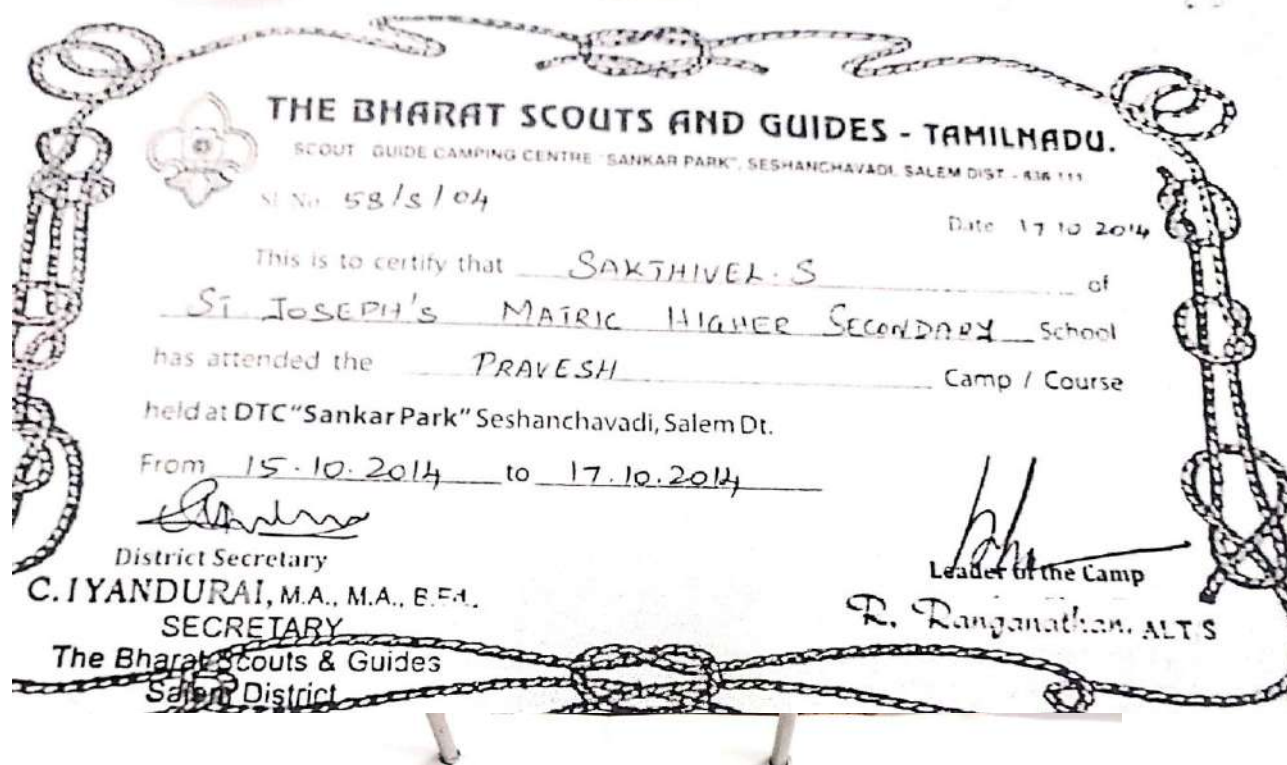 THE BHARAT SCOUTS AND GUIDES - TAMILNADU.
SCOUT GUIDE CAMPING CENTRE "SANKAR PARK", SESHANCHAVADI, SALEM DIST - 636 111
Sl. No. 58/S/04
Date 17 10 2014
This is to certify that SAKTHIVEL. S of
ST. JOSEPH'S MATRIC HIGHER SECONDARY School
has attended the PRAVESH Camp / Course
held at DTC "Sankar Park" Seshanchavadi, Salem Dt.
From 15.10.2014 to 17.10.2014
District Secretary
Leader of the Camp
C. IYANDURAI, M.A., M.A., B.Ed.,
R. Ranganathan, ALT.S
SECRETARY
The Bharat Scouts & Guides
Salem District